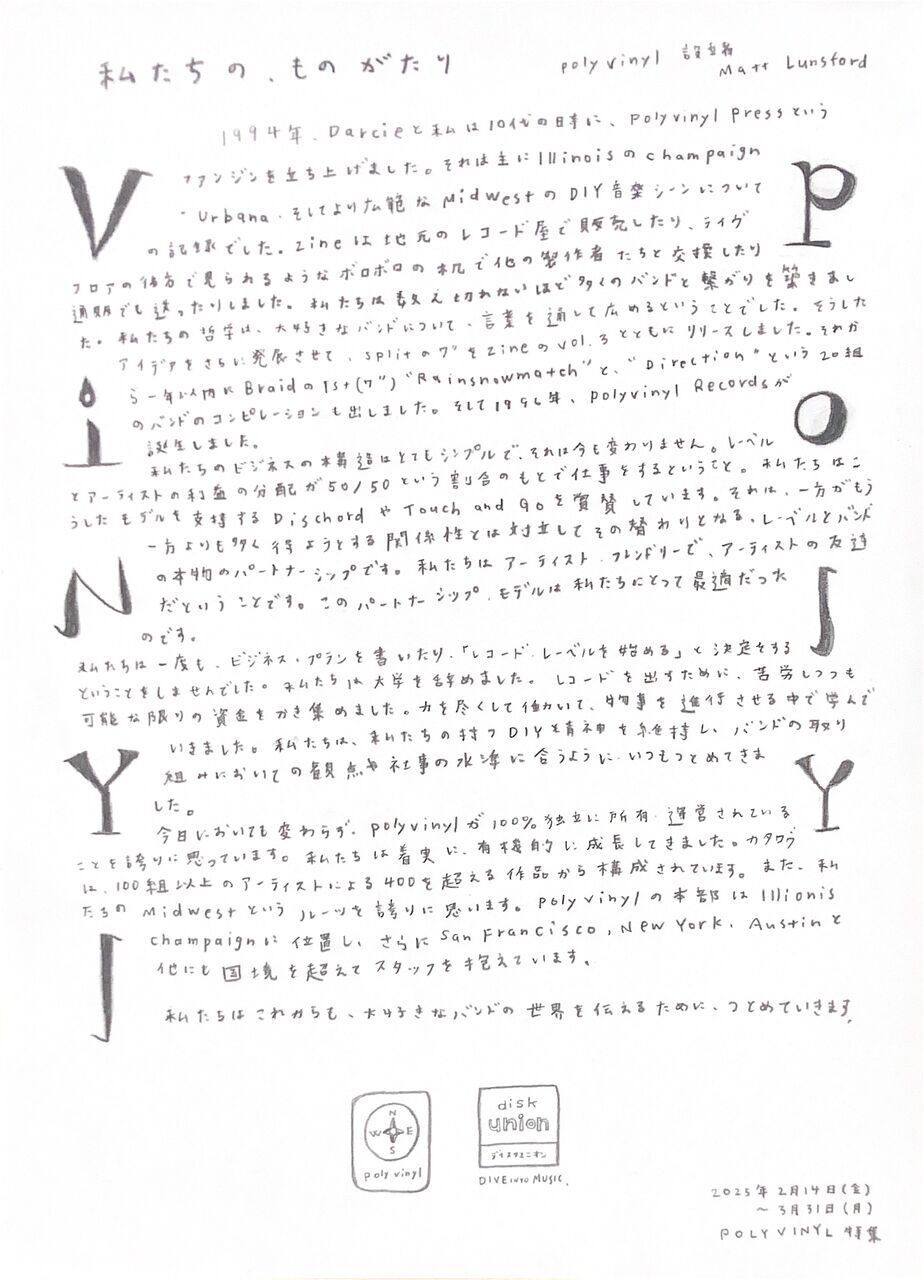 私たちの、ものがたり
polyvinyl 設立者
Matt Lunsford
1994年、Darcieと私は10代の時に、Polyvinyl Pressという
ファンジンを立ち上げました。それは主にIllinoisのchampaign
-Urbana、そしてより広範なMidwestのDIY音楽シーンについて
の記録でした。Zineは地元のレコード屋で販売したり、ライヴ
フロアの後方で見られるようなボロボロの机で他の製作者たちと交換したり
通販でも送ったりしました。私たちは数え切れないほど多くのバンドと繋がりを築きまし
た。私たちの哲学は、大好きなバンドについて、言葉を通して広めるということでした。そうした
アイデアをさらに発展させて、splitの7"をzineのvol.3とともにリリースしました。それか
ら一年以内にBraidの1st(7")"Rainsnowmatch"と、"Direction"という20組
のバンドのコンピレーションも出しました。そして1996年、polyvinyl Recordsが
誕生しました。
私たちのビジネスの構造はとてもシンプルで、それは今も変わりません。レーベル
とアーティストの利益の分配が50/50という割合のもとで仕事をするということ。私たちはこ
うしたモデルを支持するDischordやTouch and Goを賞賛しています。それは、一方がもう
一方よりも多く得ようとする関係性とは対立してその替わりとなる、レーベルとバンド
の本物のパートナーシップです。私たちはアーティスト・フレンドリーで、アーティストの友達
だということです。このパートナーシップ・モデルは私たちにとって最適だった
のです。
私たちは一度も、ビジネス・プランを書いたり、「レコード・レーベルを始める」と決定をする
ということをしませんでした。私たちは大学を辞めました。レコードを出すために、苦労しつつも
可能な限りの資金をかき集めました。力を尽くして働いて、物事を進行させる中で学んで
いきました。私たちは、私たちの持つDIY精神を維持し、バンドの取り
組みにおいての観点や仕事の水準に合うように、いつもつとめてきま
した。
今日においても変わらず、polyvinylが100%独立に所有・運営されている
ことを誇りに思っています。私たちは着実に、有機的に成長してきました。カタログ
は、100組以上のアーティストによる400を超える作品から構成されています。また、私
たちのMidwestというルーツを誇りに思います。polyvinylの本部はIllionis
champaignに位置し、さらにSan Francisco, New York, Austinと
他にも国境を超えてスタッフを抱えています。
私たちはこれからも、大好きなバンドの世界を伝えるために、つとめていきます。
P
O
L
Y
V
i
N
Y
L
N
W E
S
polyvinyl
disk
union
ディスクユニオン
DIVE INTO MUSIC.
2025年2月14日(金)
～3月31日(月)
POLYVINYL 特集